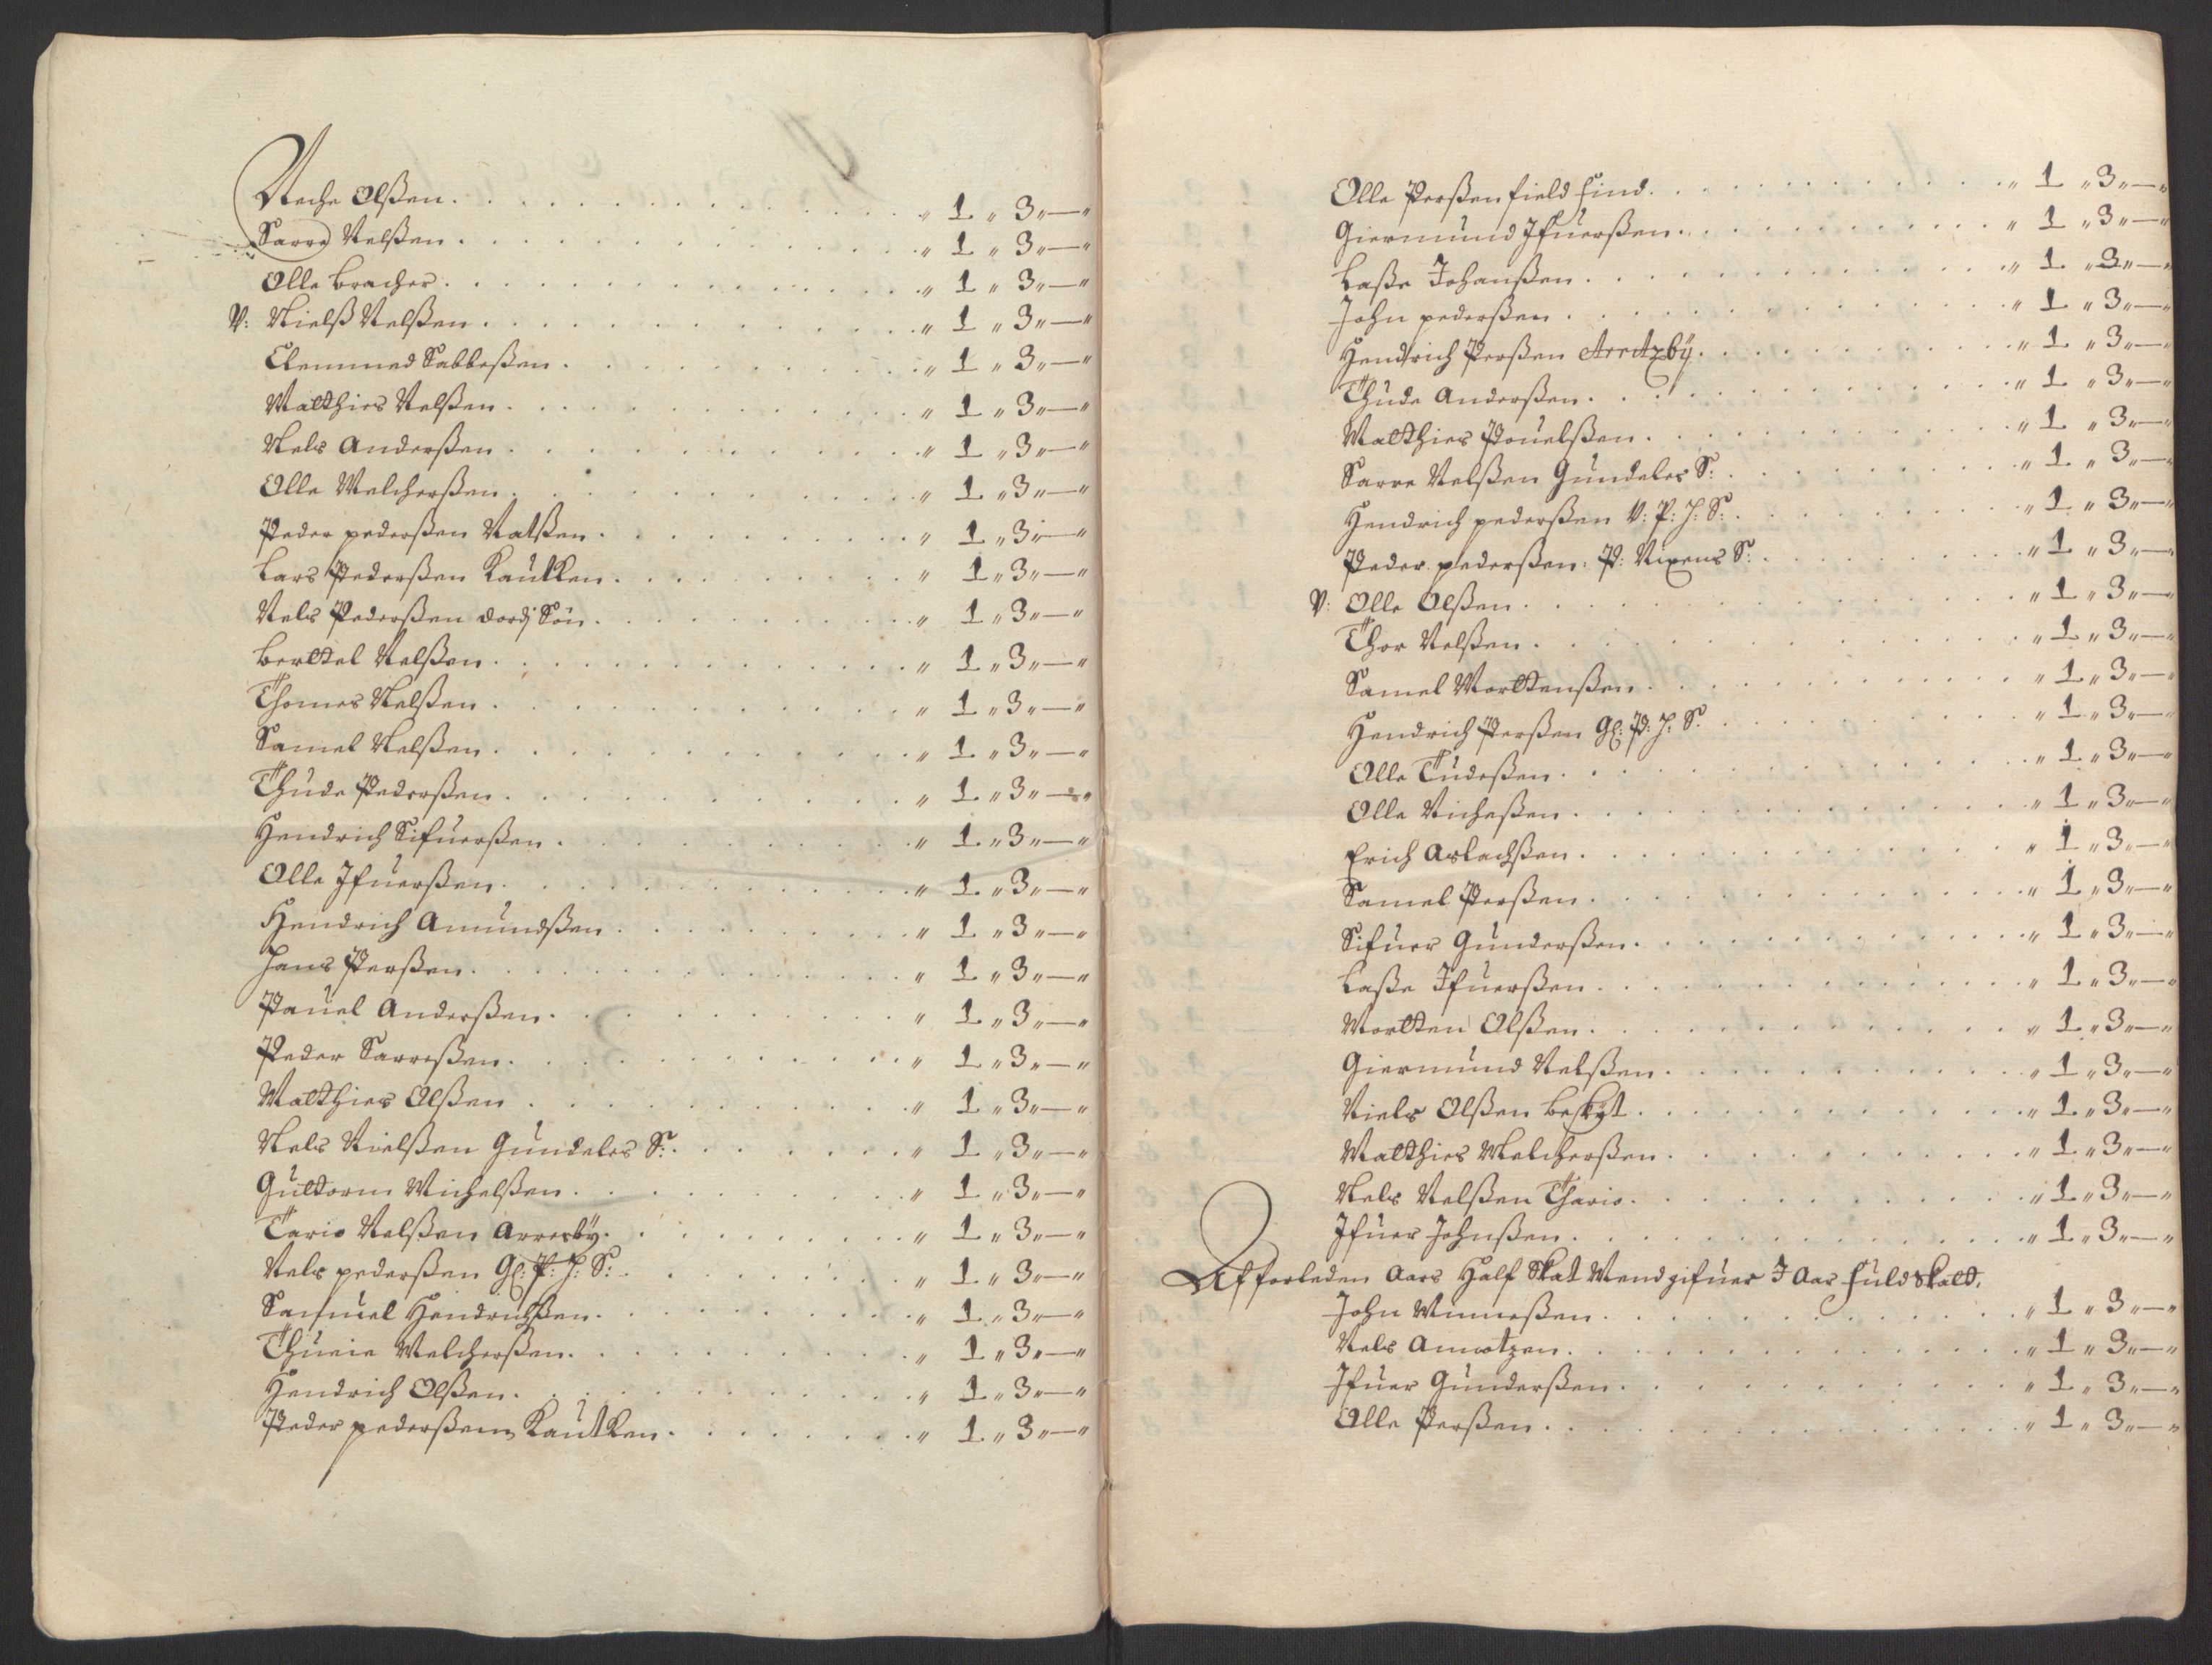 Neche Olßen . . . " 1 " 3 " — "
Sarre Nelßen . . . " 1 " 3 " — "
Olle bracher . . . " 1 " 3 " — "
V: Nielß Nelßen . . . " 1 " 3 " — "
Clemmed Sabbeßen . . . " 1 " 3 " — "
Matthies Nelßen . . . " 1 " 3 " — "
Nels Anderßen . . . " 1 " 3 " — "
Olle Melcherßen . . . " 1 " 3 " — "
Peder pederßen Natßen . . . " 1 " 3 " — "
Lars Pederßen Kautken . . . " 1 " 3 " — "
Nels Pederßen dordj Sön . . . " 1 " 3 " — "
Berttel Nelßen . . . " 1 " 3 " — "
Thomes Nelßen . . . " 1 " 3 " — "
Samel Nelßen . . . " 1 " 3 " — "
Thude Pederßen . . . " 1 " 3 " — "
Hendrich Sifuerßen . . . " 1 " 3 " — "
Olle Ifuerßen . . . " 1 " 3 " — "
Hendrich Amundßen . . . " 1 " 3 " — "
Hans Perßen . . . " 1 " 3 " — "
Pauel Anderßen . . . " 1 " 3 " — "
Peder Sarreßen . . . " 1 " 3 " — "
Matthies Olßen . . . " 1 " 3 " — "
Nels Nielßen Gundeles S: . . . " 1 " 3 " — "
Guttorm Michelßen . . . " 1 " 3 " — "
Tario Nelßen Arresby . . . " 1 " 3 " — "
Nels pederßen Gl: P: J: S: . . . " 1 " 3 " — "
Samuel Hendrichßen . . . " 1 " 3 " — "
Thueie Melcherßen . . . " 1 " 3 " — "
Hendrich Olßen . . . " 1 " 3 " — "
Peder pederßenn Kautken . . . " 1 " 3 " — "
Olle Perßen field find . . . " 1 " 3 " — "
Giermund Ifuerßen . . . " 1 " 3 " — "
Laße Johanßen . . . " 1 " 3 " — "
John pederßen . . . " 1 " 3 " — "
Hendrich Perßen Arritzbÿ . . . " 1 " 3 " — "
Thude Anderßen . . . " 1 " 3 " — "
Matthies Pouelßen . . . " 1 " 3 " — "
Sarre Nelßen Gundeles S: . . . " 1 " 3 " — "
Hendrich pederßen V: P: J: S: . . . " 1 " 3 " — "
Peder pederßen: P: Nixens S: . . . " 1 " 3 " — "
V: Olle Olßen . . . " 1 " 3 " — "
Thor Nelßen . . . " 1 " 3 " — "
Samel Morttenßen . . . " 1 " 3 " — "
Hendrich Perßen Gl: P: J: S: . . . " 1 " 3 " — "
Olle Tudeßen . . . " 1 " 3 " — "
Olle Nicheßen . . . " 1 " 3 " — "
Erich Aslachßen . . . " 1 " 3 " — "
Samel Perßen . . . " 1 " 3 " — "
Sifuer Gunderßen . . . " 1 " 3 " — "
Laße Ifuerßen . . . " 1 " 3 " — "
Mortten Olßen . . . " 1 " 3 " — "
Giermund Nelßen . . . " 1 " 3 " — "
Niels Olßen beskyt . . . " 1 " 3 " — "
Matthies Melcherßen . . . " 1 " 3 " — "
Nels Nelßen Thario . . . " 1 " 3 " — "
Ifuer Johnßen . . . " 1 " 3 " — "
Af forleden Aars Half Skat Mend gifuer I Aar fuld skatt.
John . . . " 1 " 3 " — "
Nels Amotzen . . . " 1 " 3 " — "
Ifuer Gunderßen . . . " 1 " 3 " — "
Olle Perßen . . . " 1 " 3 " — "